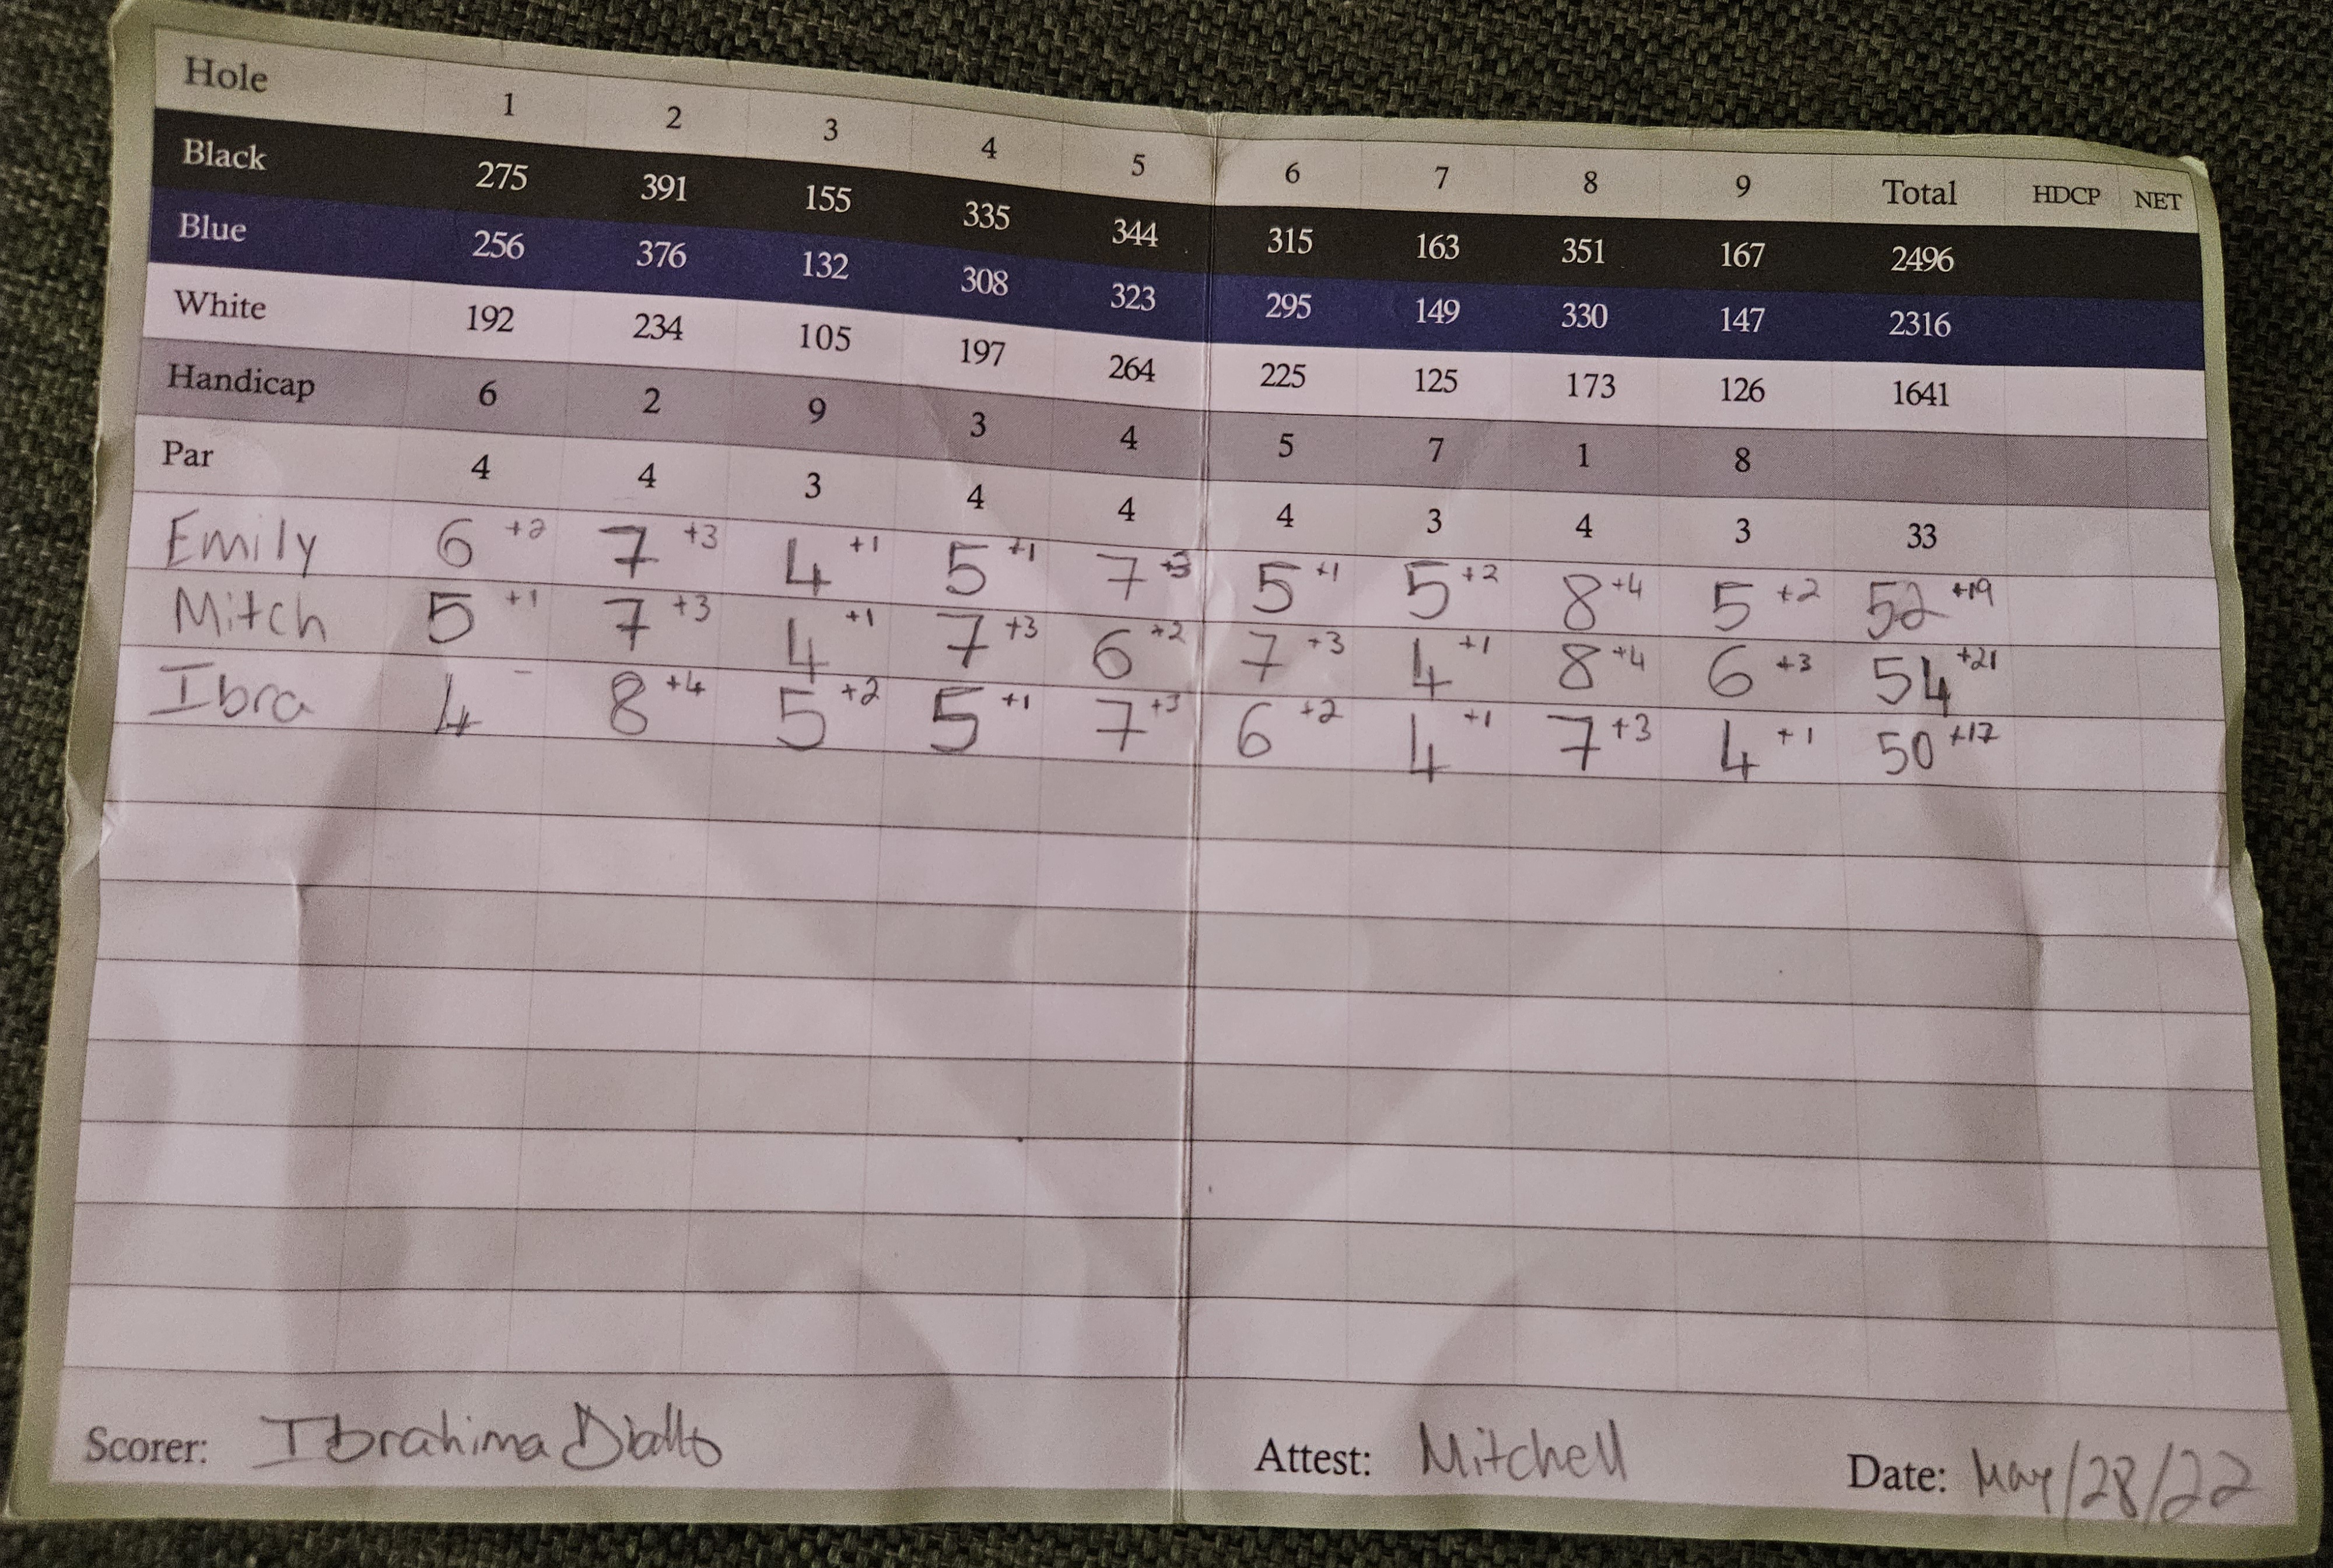 Hole 1 2 3 4 5 6 7 8 9 Total HDCP NET
Black 275 391 155 335 344 315 163 351 167 2496
Blue 256 376 132 308 323 295 149 330 147 2316
White 192 234 105 197 264 225 125 173 126 1641
Handicap 6 2 9 3 4 5 7 1 8
Par 4 4 3 4 4 4 3 4 3 33
Emily 6 +2 7 +3 4 +1 5 +1 7 +3 5 +1 5 +2 8 +4 5 +2 52 +19
Mitch 5 +1 7 +3 4 +1 7 +3 6 +2 7 +3 4 +1 8 +4 6 +3 54 +21
Ibra 4 - 8 +4 5 +2 5 +1 7 +3 6 +2 4 +1 7 +3 4 +1 50 +17
Scorer: Ibrahima Diallo Attest: Mitchell Date: May/28/22